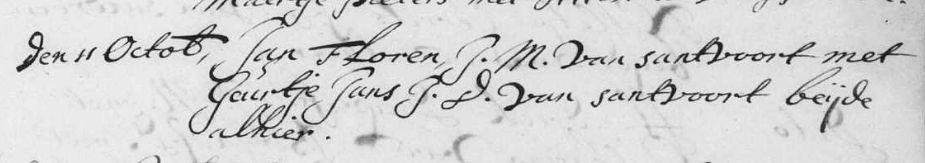 Maertje pieters met
den 11 Octob, Jan Floren J. M. van santvoort met
Geurtje Jans J. D. van santvoort beijde
alhier.